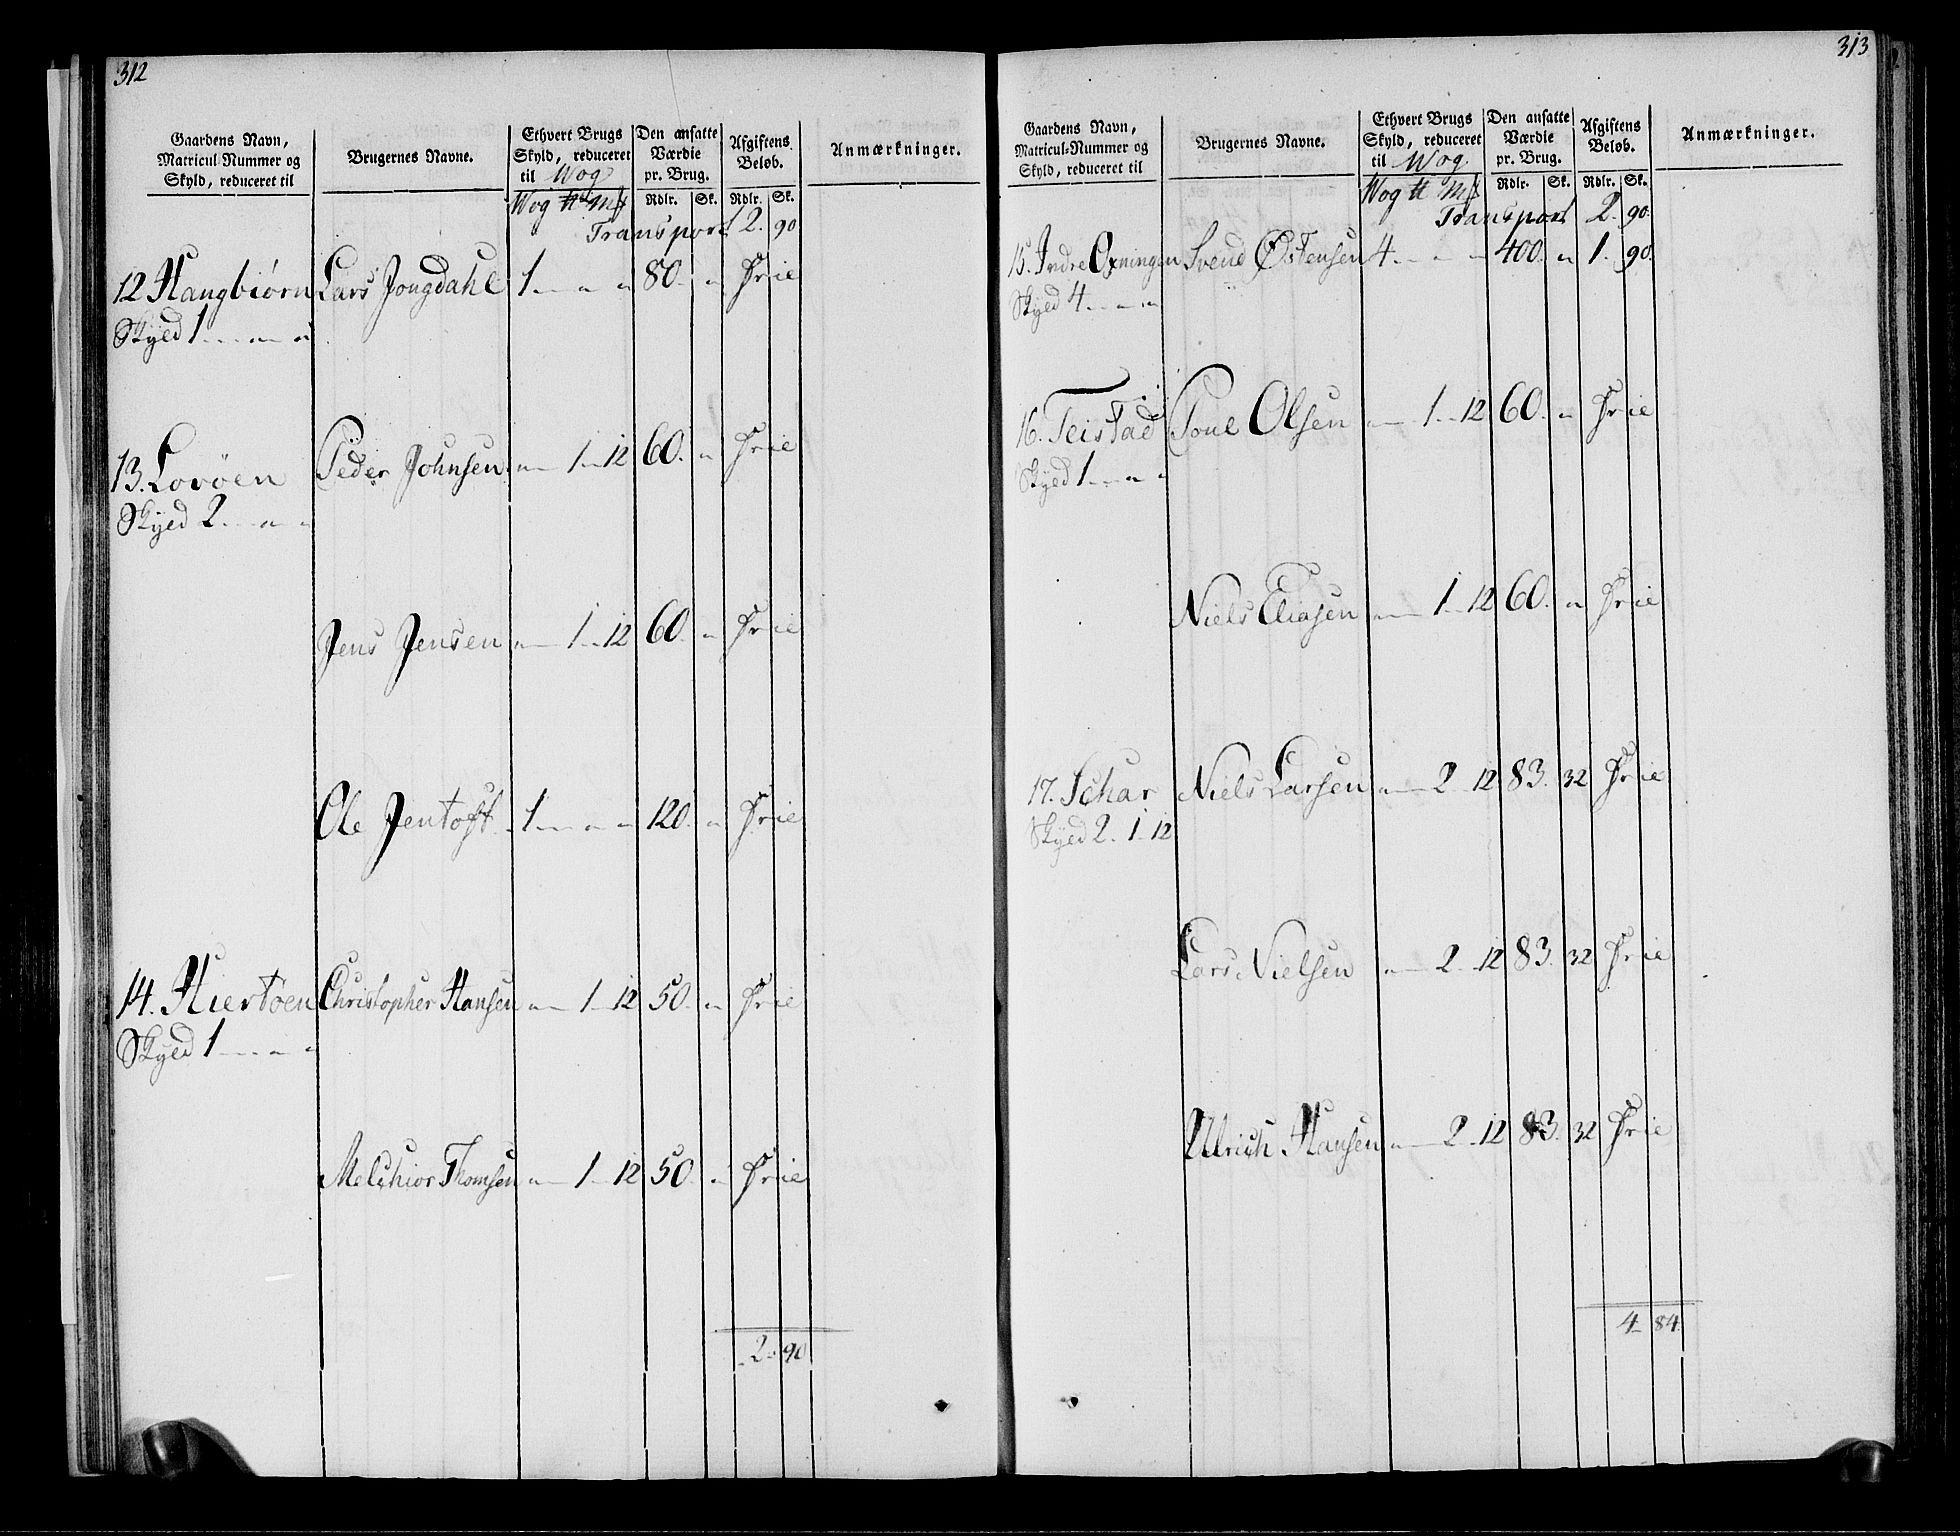 312
Gaardens Navn,
Matricul-Nummer og
Skyld, reduceret til
Brugernes Navne.
Ethvert Brugs
Skyld, reduceret
til Wog
Den ansatte
Værdie
pr. Brug.
Afgiftens
Beløb.
Anmærkninger.
Wog ℔ Mk Rdlr. Sk. Rdlr. Sk.
Transport 2. 90
12 Hangbiørn Lars Jongdahl 1 „ „ 80. „ Frie
Skyld 1 „ „
13. Lovøen Peder Johnsen „ 1 12 60. „ Frie
Skyld 2 „ „
Jens Jensen „ 1 12 60. „ Frie
Ole Jentoft 1 „ „ 120. „ Frie
14. Hiertøen Christopher Hansen „ 1 12 50. „ Frie
Skyld 1 „ „
Melchior Thomsen „ 1 12 50. „ Frie
2 90
313
Gaardens Navn,
Matricul-Nummer og
Skyld, reduceret til
Brugernes Navne.
Ethvert Brugs
Skyld, reduceret
til Wog
Den ansatte
Værdie
pr. Brug.
Afgiftens
Beløb.
Anmærkninger.
Wog ℔ Mk Rdlr. Sk. Rdlr. Sk.
Transport 2. 90.
15. Indre Oxningen Svend Østensen 4 „ „ 400. „ 1. 90.
Skyld 4 „ „
16. Teistad Poul Olsen „ 1 12 60. „ Frie
Skyld 1 „ „
Niels Eliasen „ 1 12 60. „ Frie
17. Schar Niels Larsen „ 2 12 83. 32 Frie
Skyld 2. 1 12
Lars Nielsen „ 2 12 83. 32 Frie
Ulrich Hansen „ 2 12 83. 32 Frie
4 84.